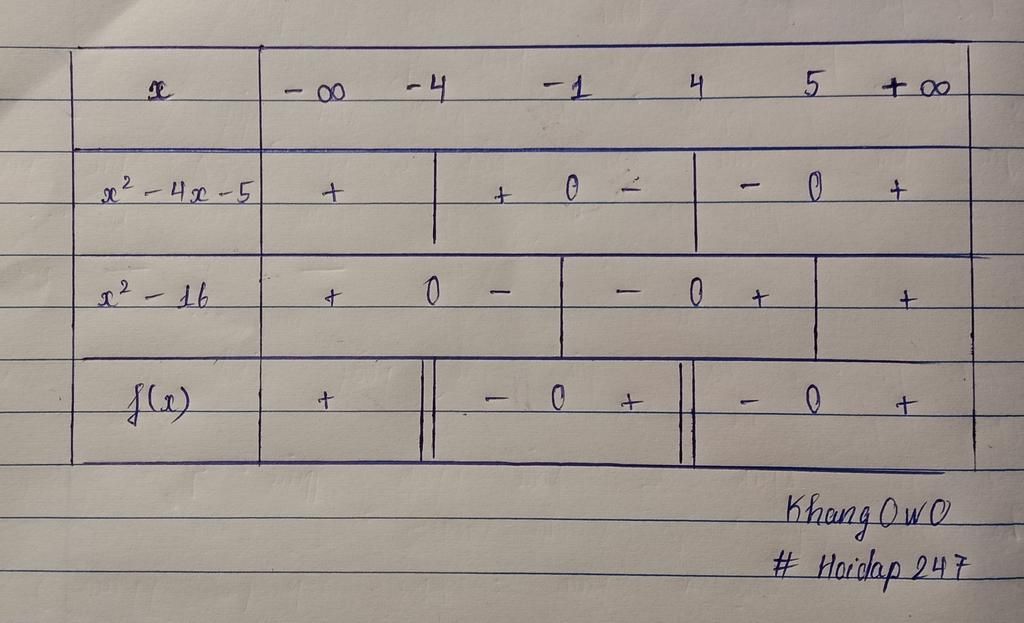 x -∞ -4 -1 4 5 +∞
x² - 4x - 5 + | + 0 - | - 0 +
x² - 16 + 0 - | - 0 + | +
f(x) + || - 0 + || - 0 +
Khang OwO
# Hoidap 247